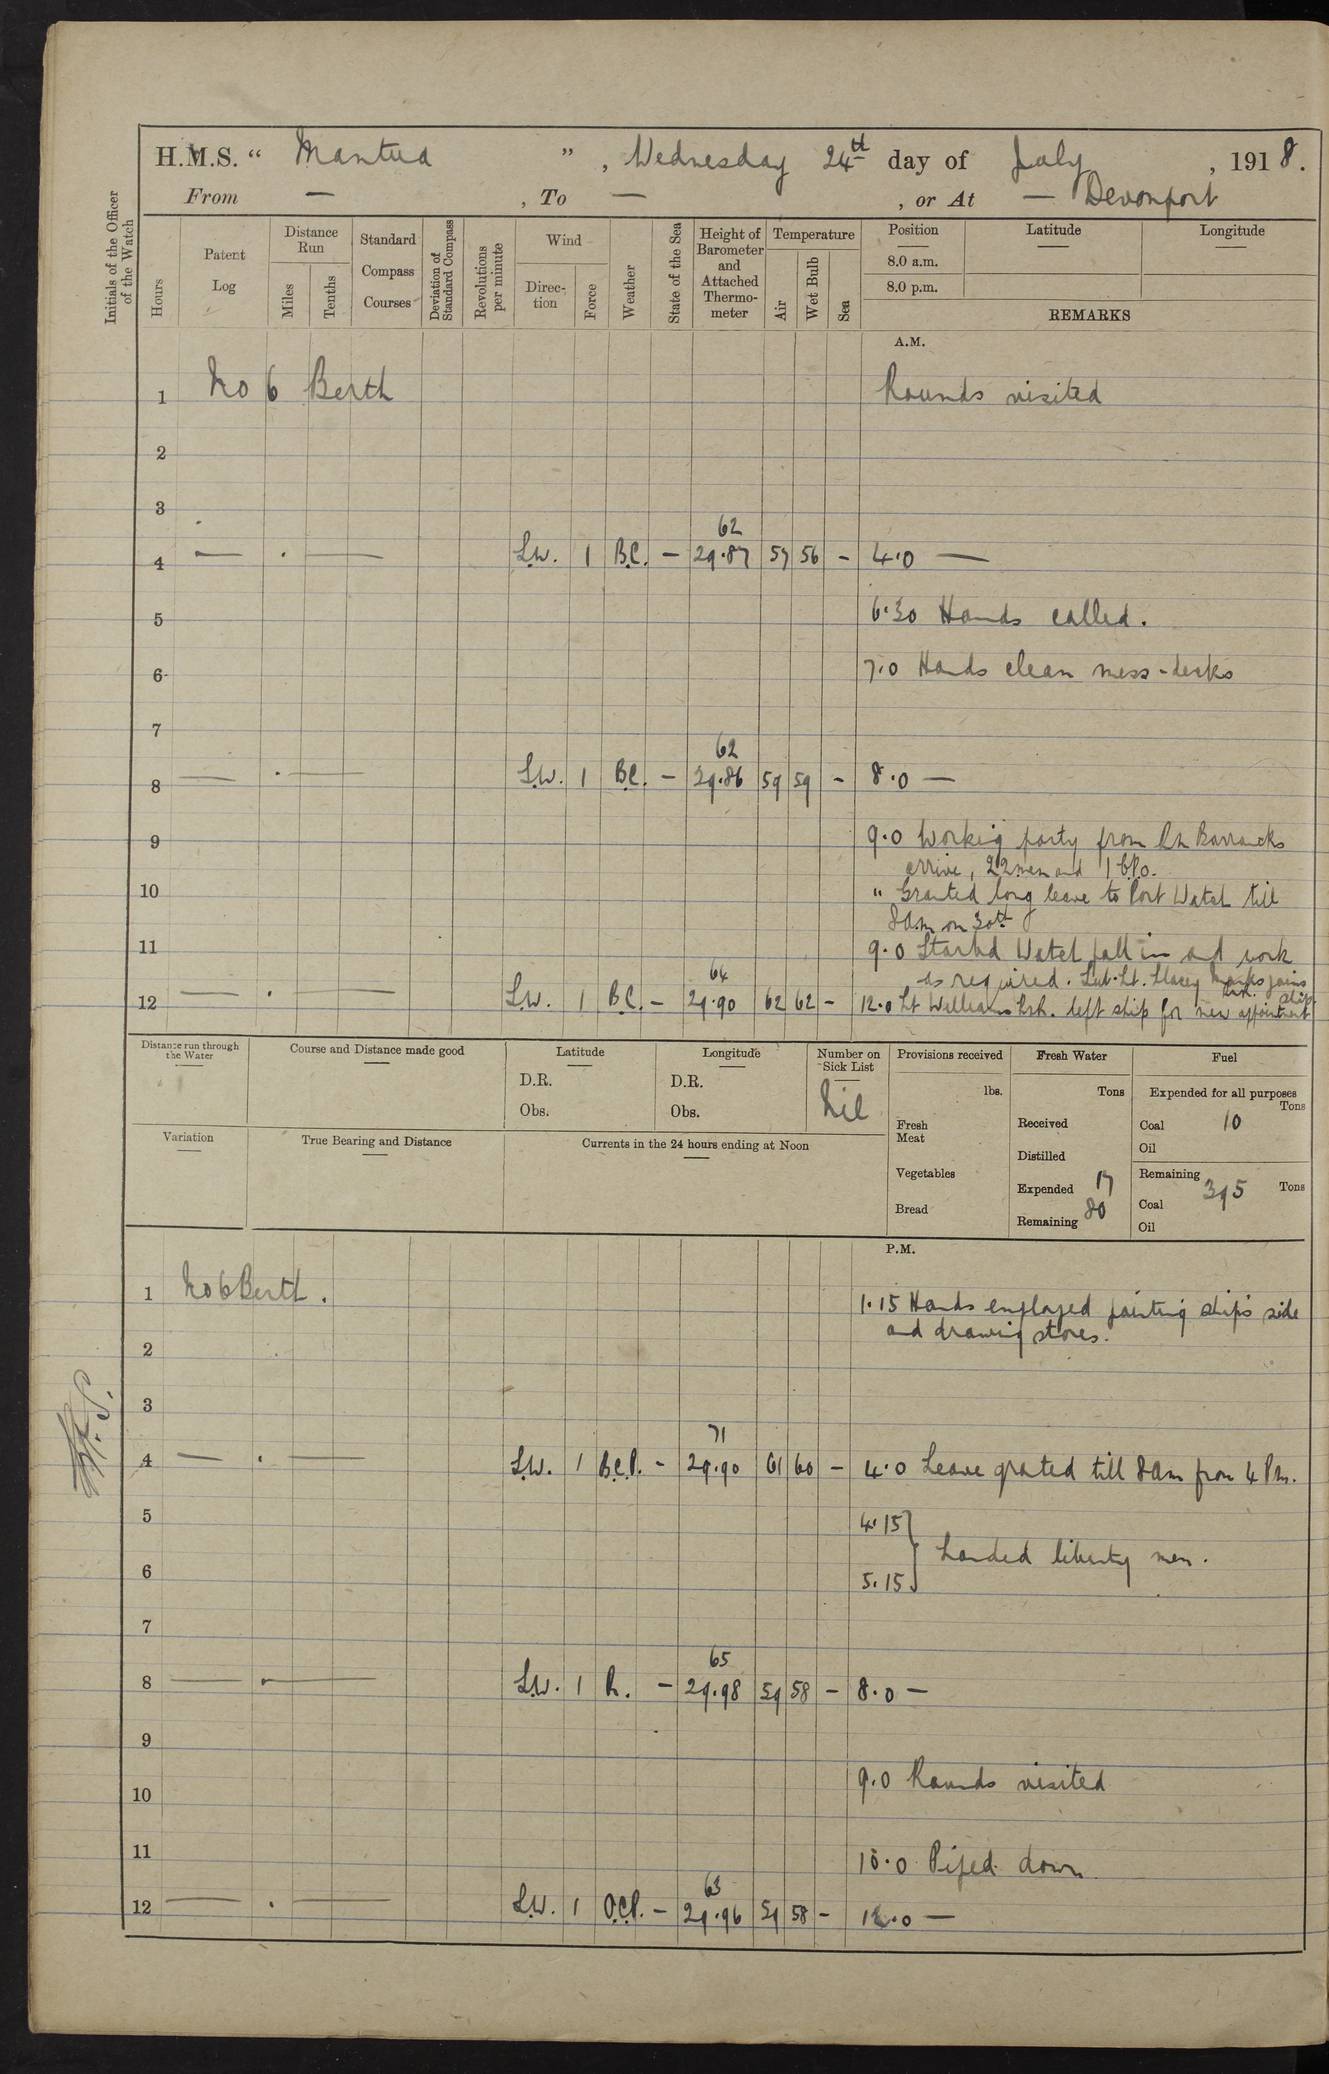 H.M.S. “ Mantua ” , Wednesday 24th day of July , 1918.
From — , To — , or At — Devonport
Initials of the Officer of the Watch
Hours
Patent Log
Distance Run
Miles
Tenths
Standard Compass Courses
Deviation of Standard Compass
Revolutions per minute
Wind
Direction
Force
Weather
State of the Sea
Height of Barometer and Attached Thermometer
Temperature
Air
Wet Bulb
Sea
Position
8.0 a.m.
8.0 p.m.
Latitude
Longitude
REMARKS
A.M.
1 No 6 Berth Rounds visited
2
3
62
4 — . — S.W. 1 B.C. — 29.87 57 56 — 4.0 —
5 6.30 Hands called.
6 7.0 Hands clean mess-decks
7
62
8 — . — S.W. 1 B.C. — 29.86 59 59 — 8.0 —
9 9.0 Workig party from RN Barracks
arrive, 22 men and 1 C.P.O.
10 " Granted long leave to Port Watch till
8am on 30th
11 9.0 Starbd Watch fall in and work
64
as required. Sub. Lt. Stacey Marks joins ship.
12 — . — S.W. 1 B.C. — 29.90 62 62 — 12.0 Lt Williams left ship for new appointment
Distance run through the Water
Course and Distance made good
Latitude
D.R.
Obs.
Longitude
D.R.
Obs.
Number on Sick List
Nil
Provisions received
lbs.
Fresh Meat
Vegetables
Bread
Fresh Water
Tons
Received
Distilled
Expended 17
Remaining 80
Fuel
Expended for all purposes
Tons
Coal 10
Oil
Remaining
Tons
Coal 395
Oil
Variation
True Bearing and Distance
Currents in the 24 hours ending at Noon
P.M.
1 No 6 Berth. 1.15 Hands employed painting ship's side
and drawig stores.
2
3
71
4 — . — S.W. 1 B.C.P. — 29.90 61 60 — 4.0 Leave grated till 8am from 4 Pm.
5 4.15
Landed liberty men.
6 5.15
7
65
8 — . — S.W. 1 R. — 29.98 59 58 — 8.0 —
9
9.0 Rounds visited
10
11 10.0 Piped down
63
12 — . — S.W. 1 O.C.P. — 29.96 59 58 — 12.0 —